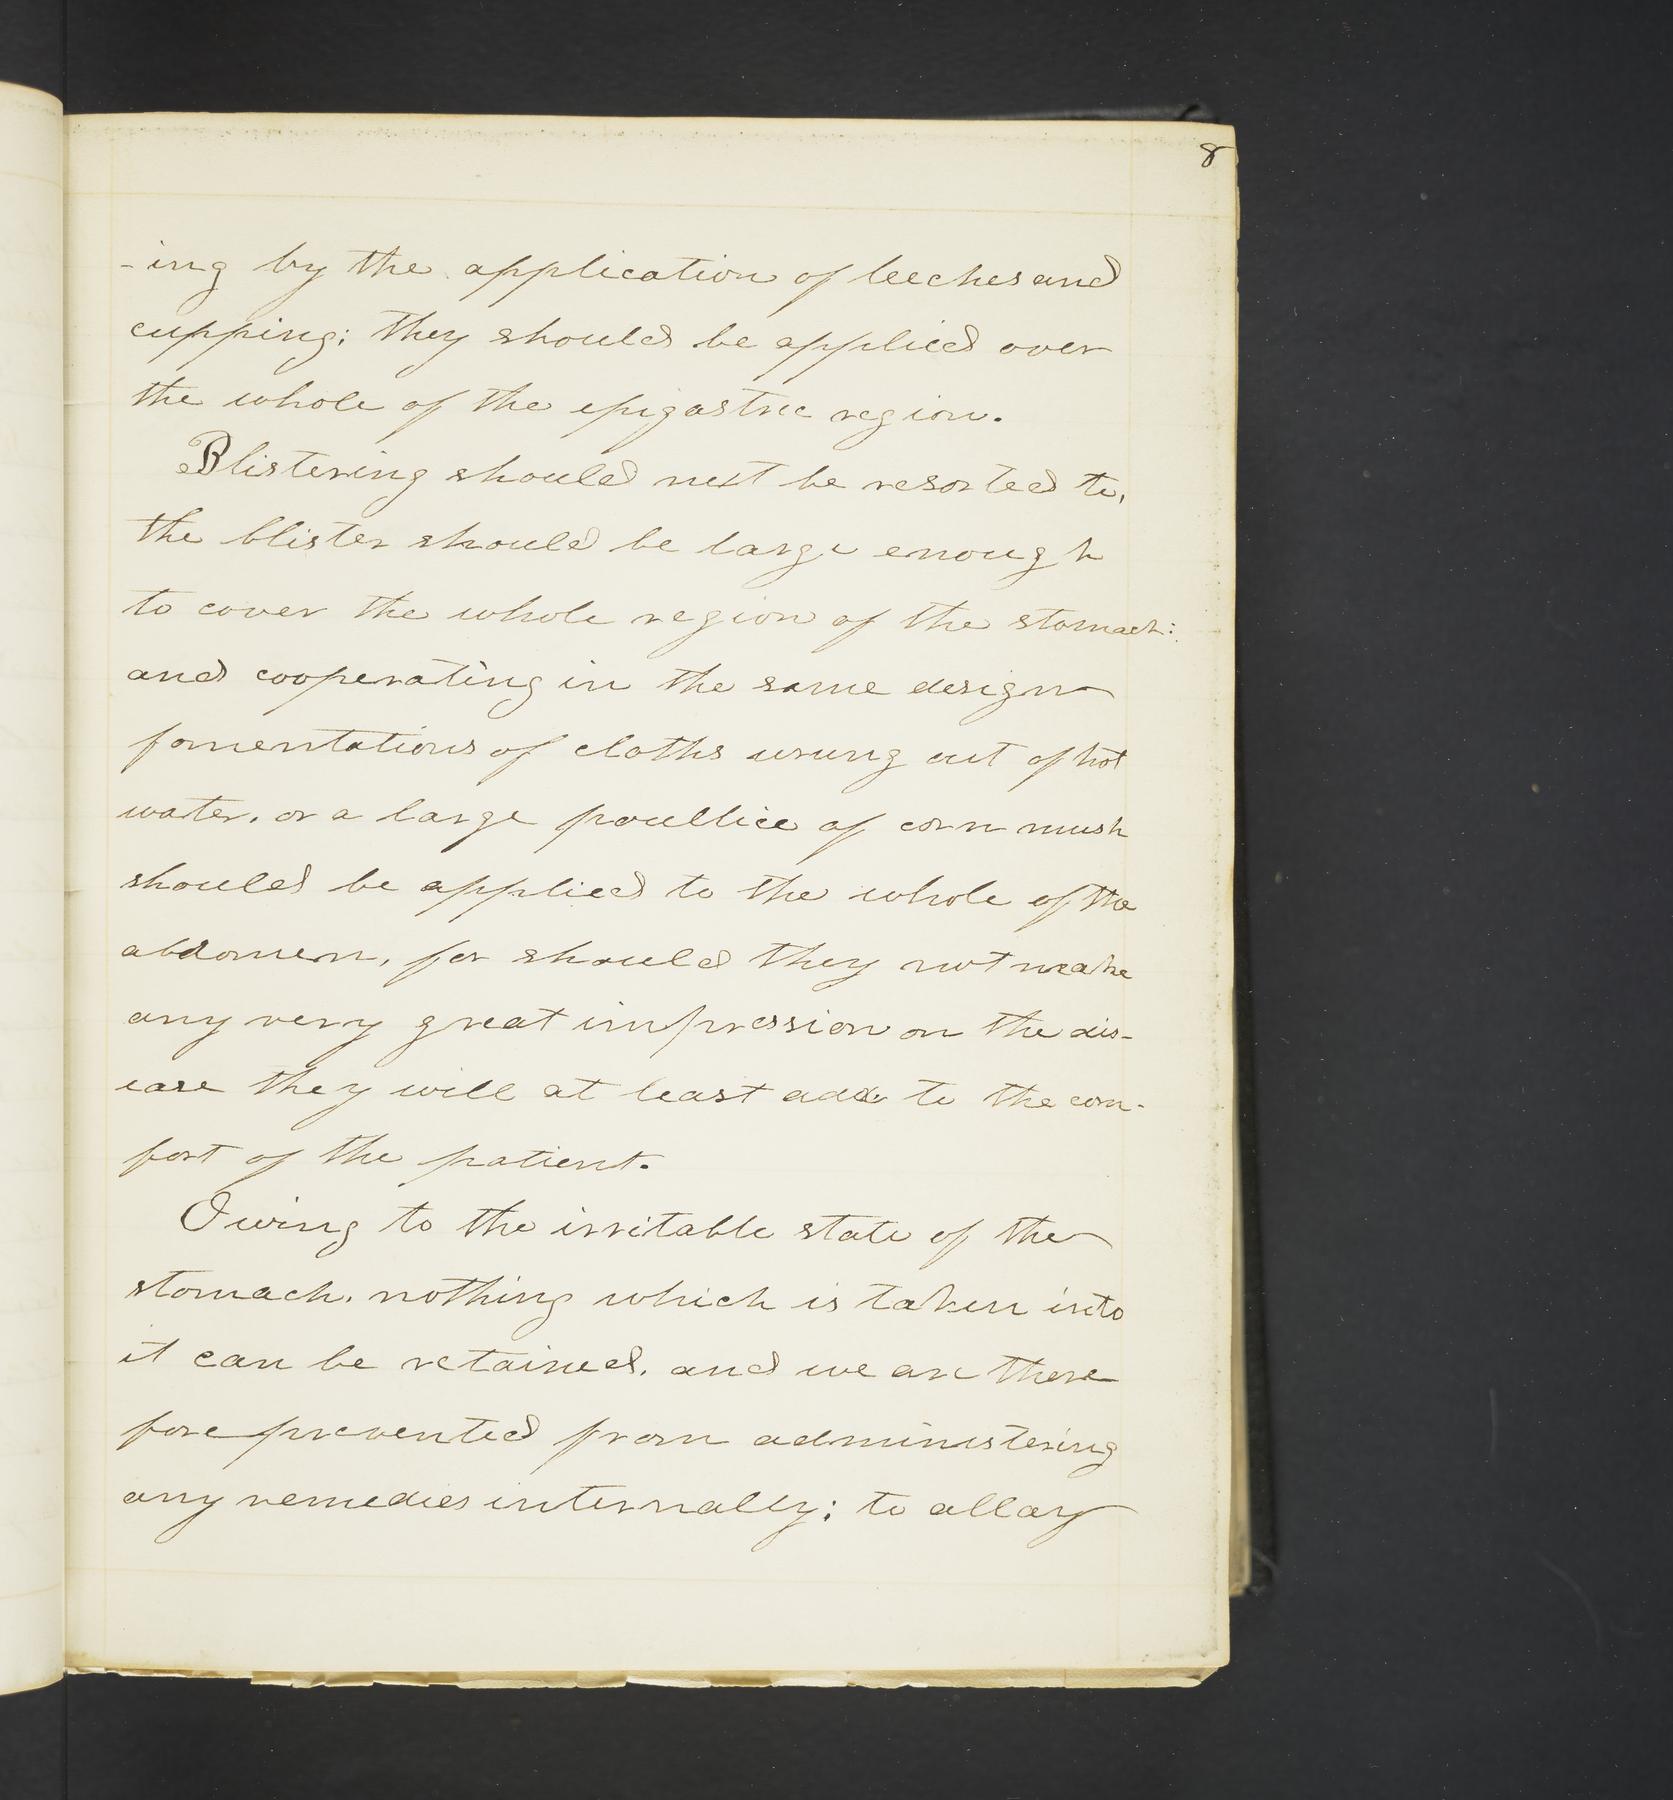 8
-ing by the application of leeches and
cupping; they should be applied over
the whole of the epigastric region.
Blistering should next be resorted to,
the blister should be large enough
to cover the whole region of the stomach:
and cooperating in the same design
fomentations of cloths wrung out of hot
water, or a large poultice of corn mush
should be applied to the whole of the
abdomen, for should they not make
any very great impression on the dis-
ease they will at least add to the com-
fort of the patient.
Owing to the irritable state of the
stomach, nothing which is taken into
it can be retained, and we are there
fore prevented from administering
any remedies internally; to allay